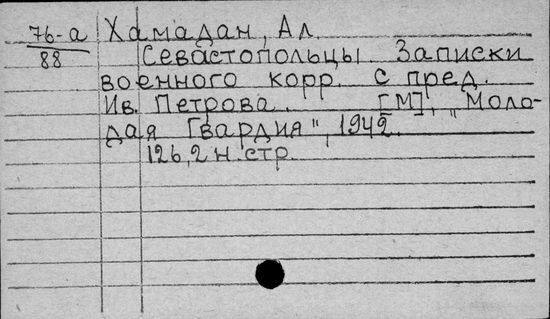 76-а Хамадан, Ал.
88 Севастопольцы. Записки
военного корр. с пред.
Ив. Петрова. [М], „Моло-
дая Гвардия", 1942.
126,2 н. стр.